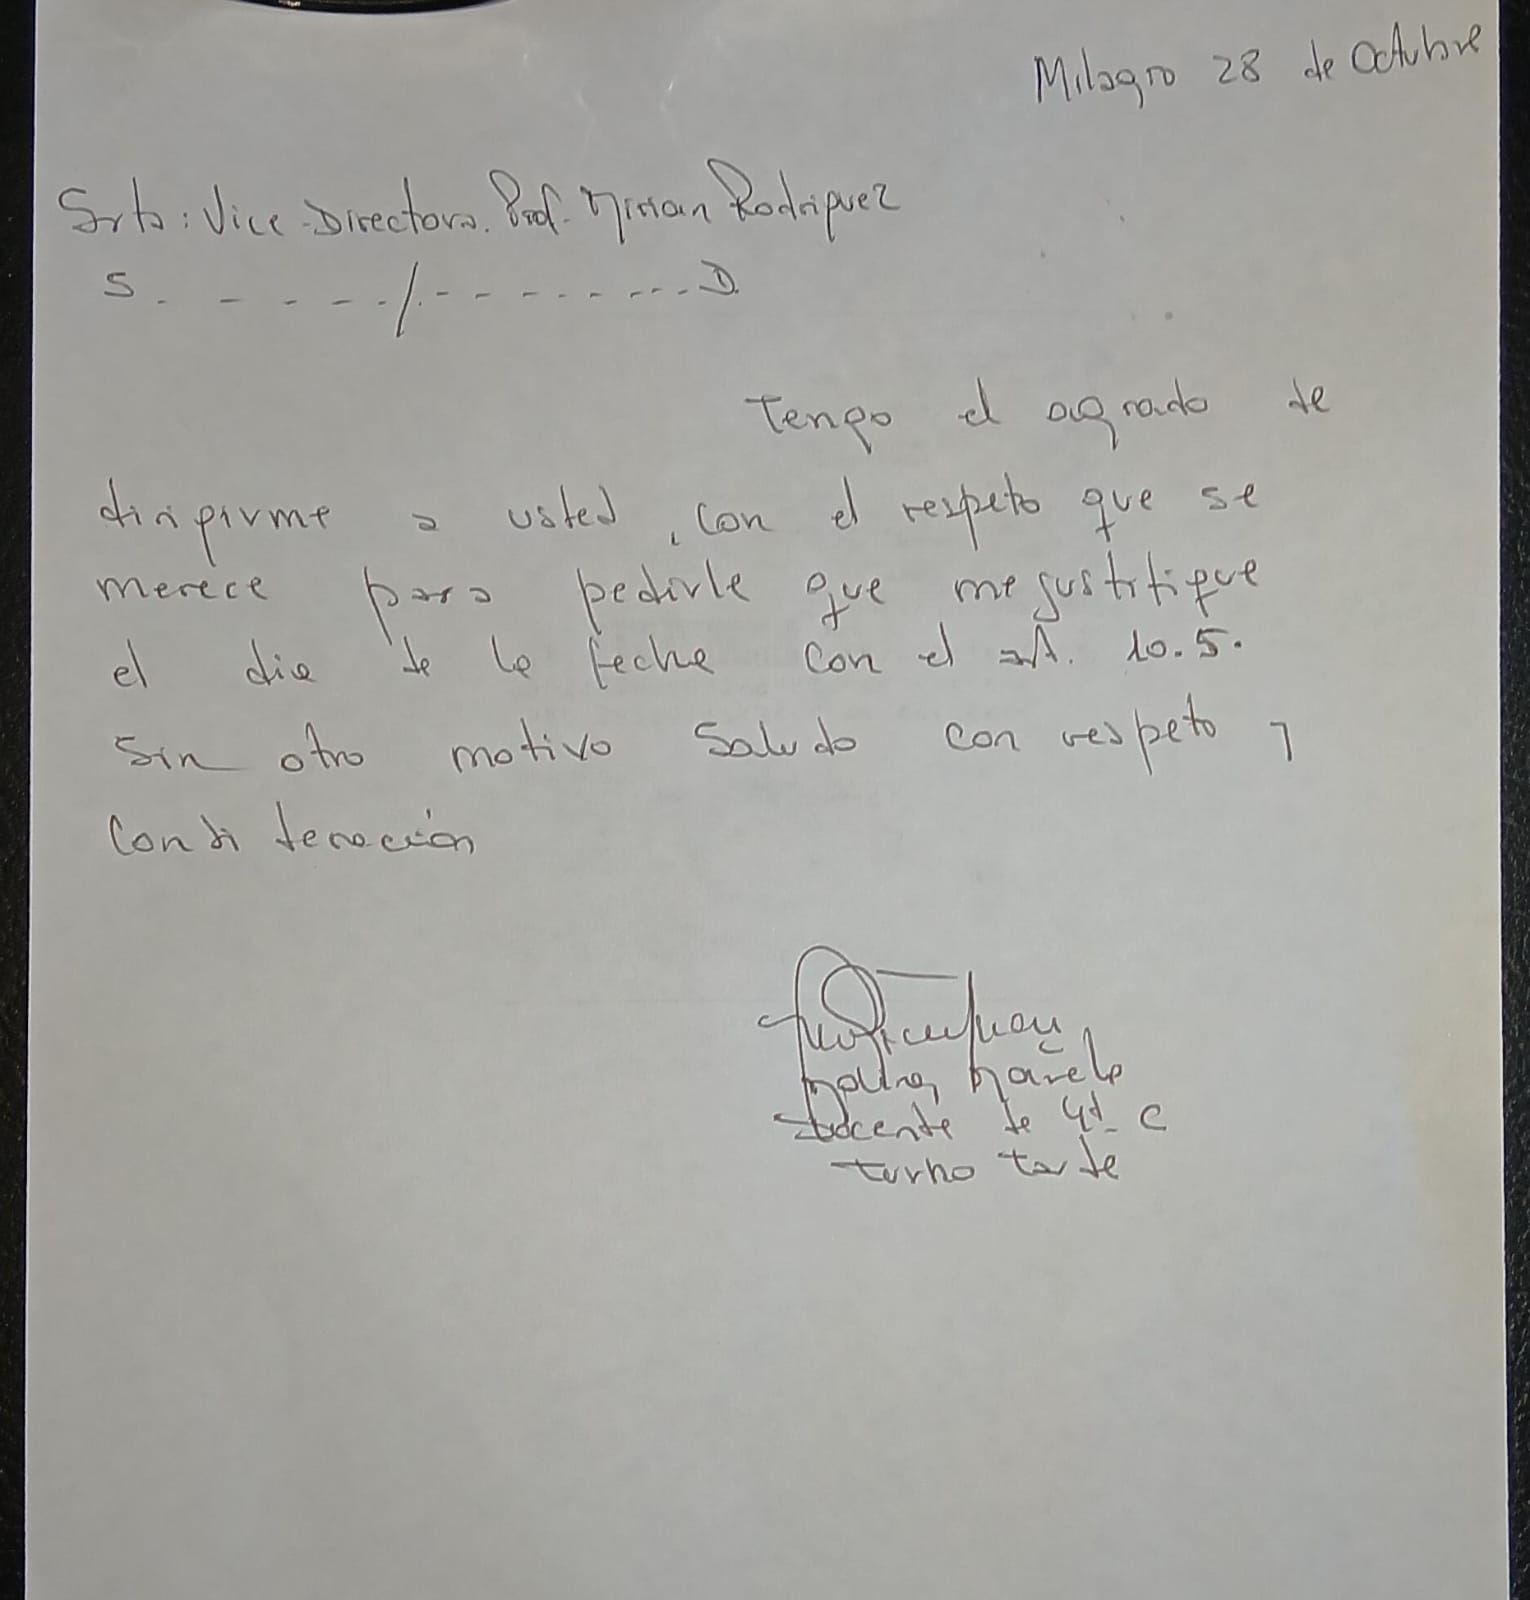 Milagro 28 de Octubre
Srta: Vice Directora. Prof. Mirian Rodriguez
S. - - - - - /. - - - - - - - - - D.
Tengo el agrado de
dirigirme a usted, con el respeto que se
merece para pedirle que me justifique
el dia de la fecha con el art. 10.5.
Sin otro motivo Saludo con respeto y
Consideración
Docente de 4º C
turno tarde